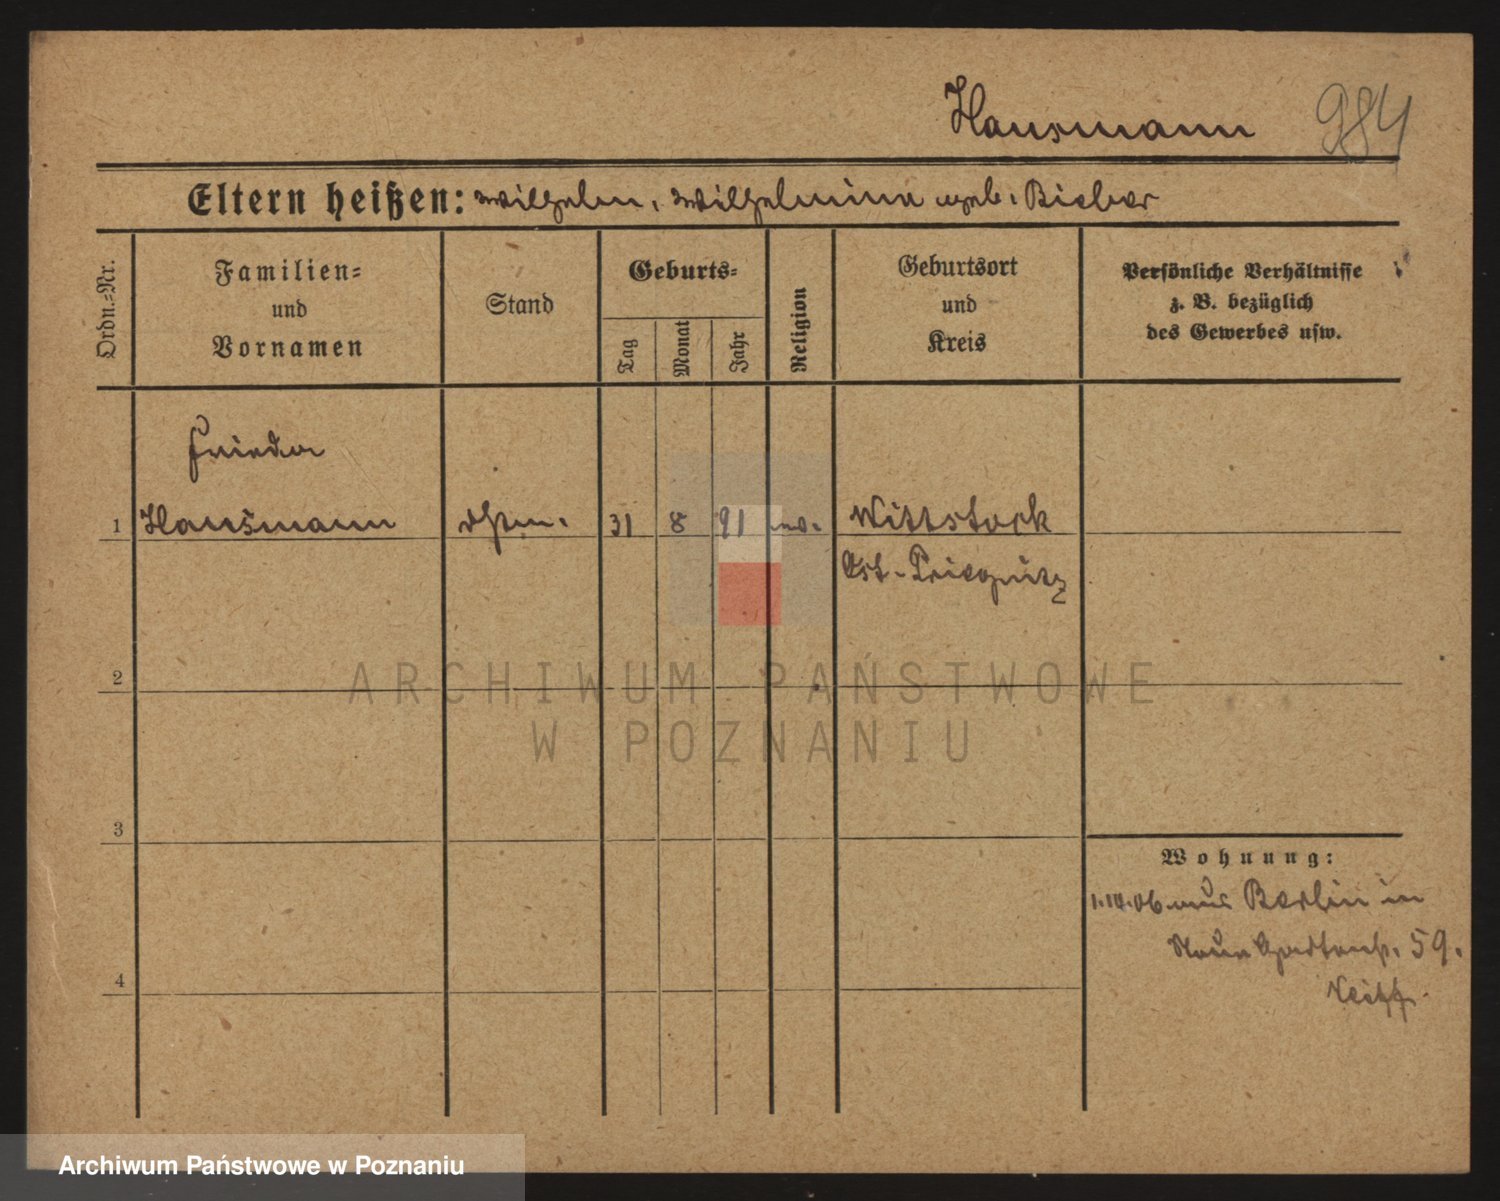 Hausmann 984
Eltern heißen: Wilhelm, Wilhelmine geb. Bieber
Ordn.=Nr.
Familien=
und
Vornamen
Stand
Geburts=
Tag
Monat
Jahr
Religion
Geburtsort
und
Kreis
Persönliche Verhältnisse
z. B. bezüglich
des Gewerbes usw.
Frieda
1 Hausmann 31 8 91 ev. Wittstock
Ost-Priegnitz
2
ARCHIWUM PAŃSTWOWE
W POZNANIU
3
Wohnung:
1.10.06 aus Berlin in
Neue Gartenstr. 59.
4
Archiwum Państwowe w Poznaniu